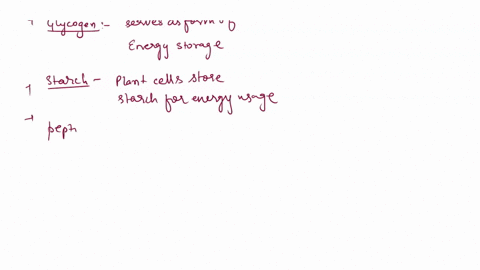 Glycogen:- serves as form of
Energy storage
Starch - Plant cells store
starch for energy usage
pept